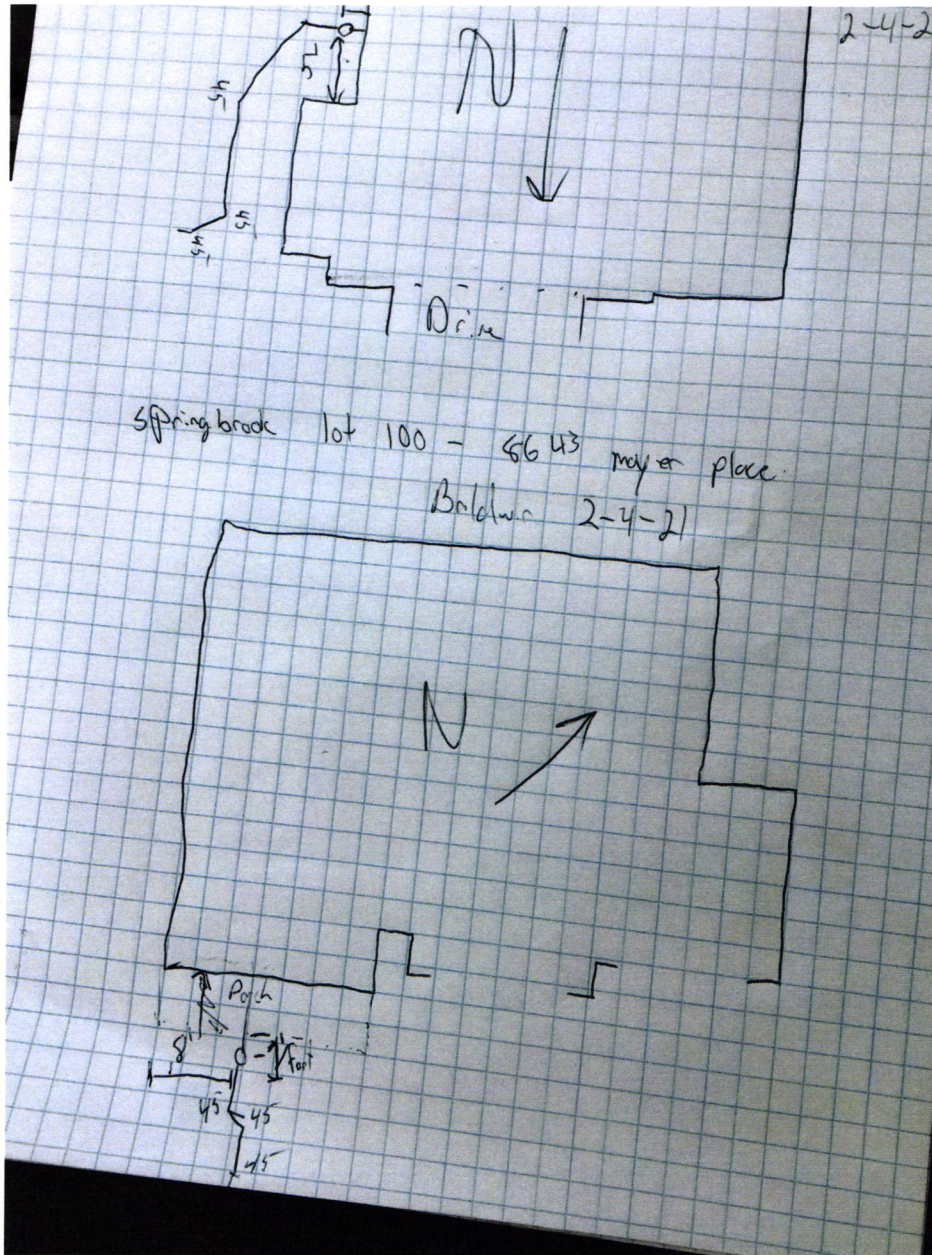 2-4-2
N
5'
45
45
45
Drive
Springbrook lot 100 - 8643 mayer place.
Baldwin 2-4-21
N
Porch
8'
Foot
45 45
45